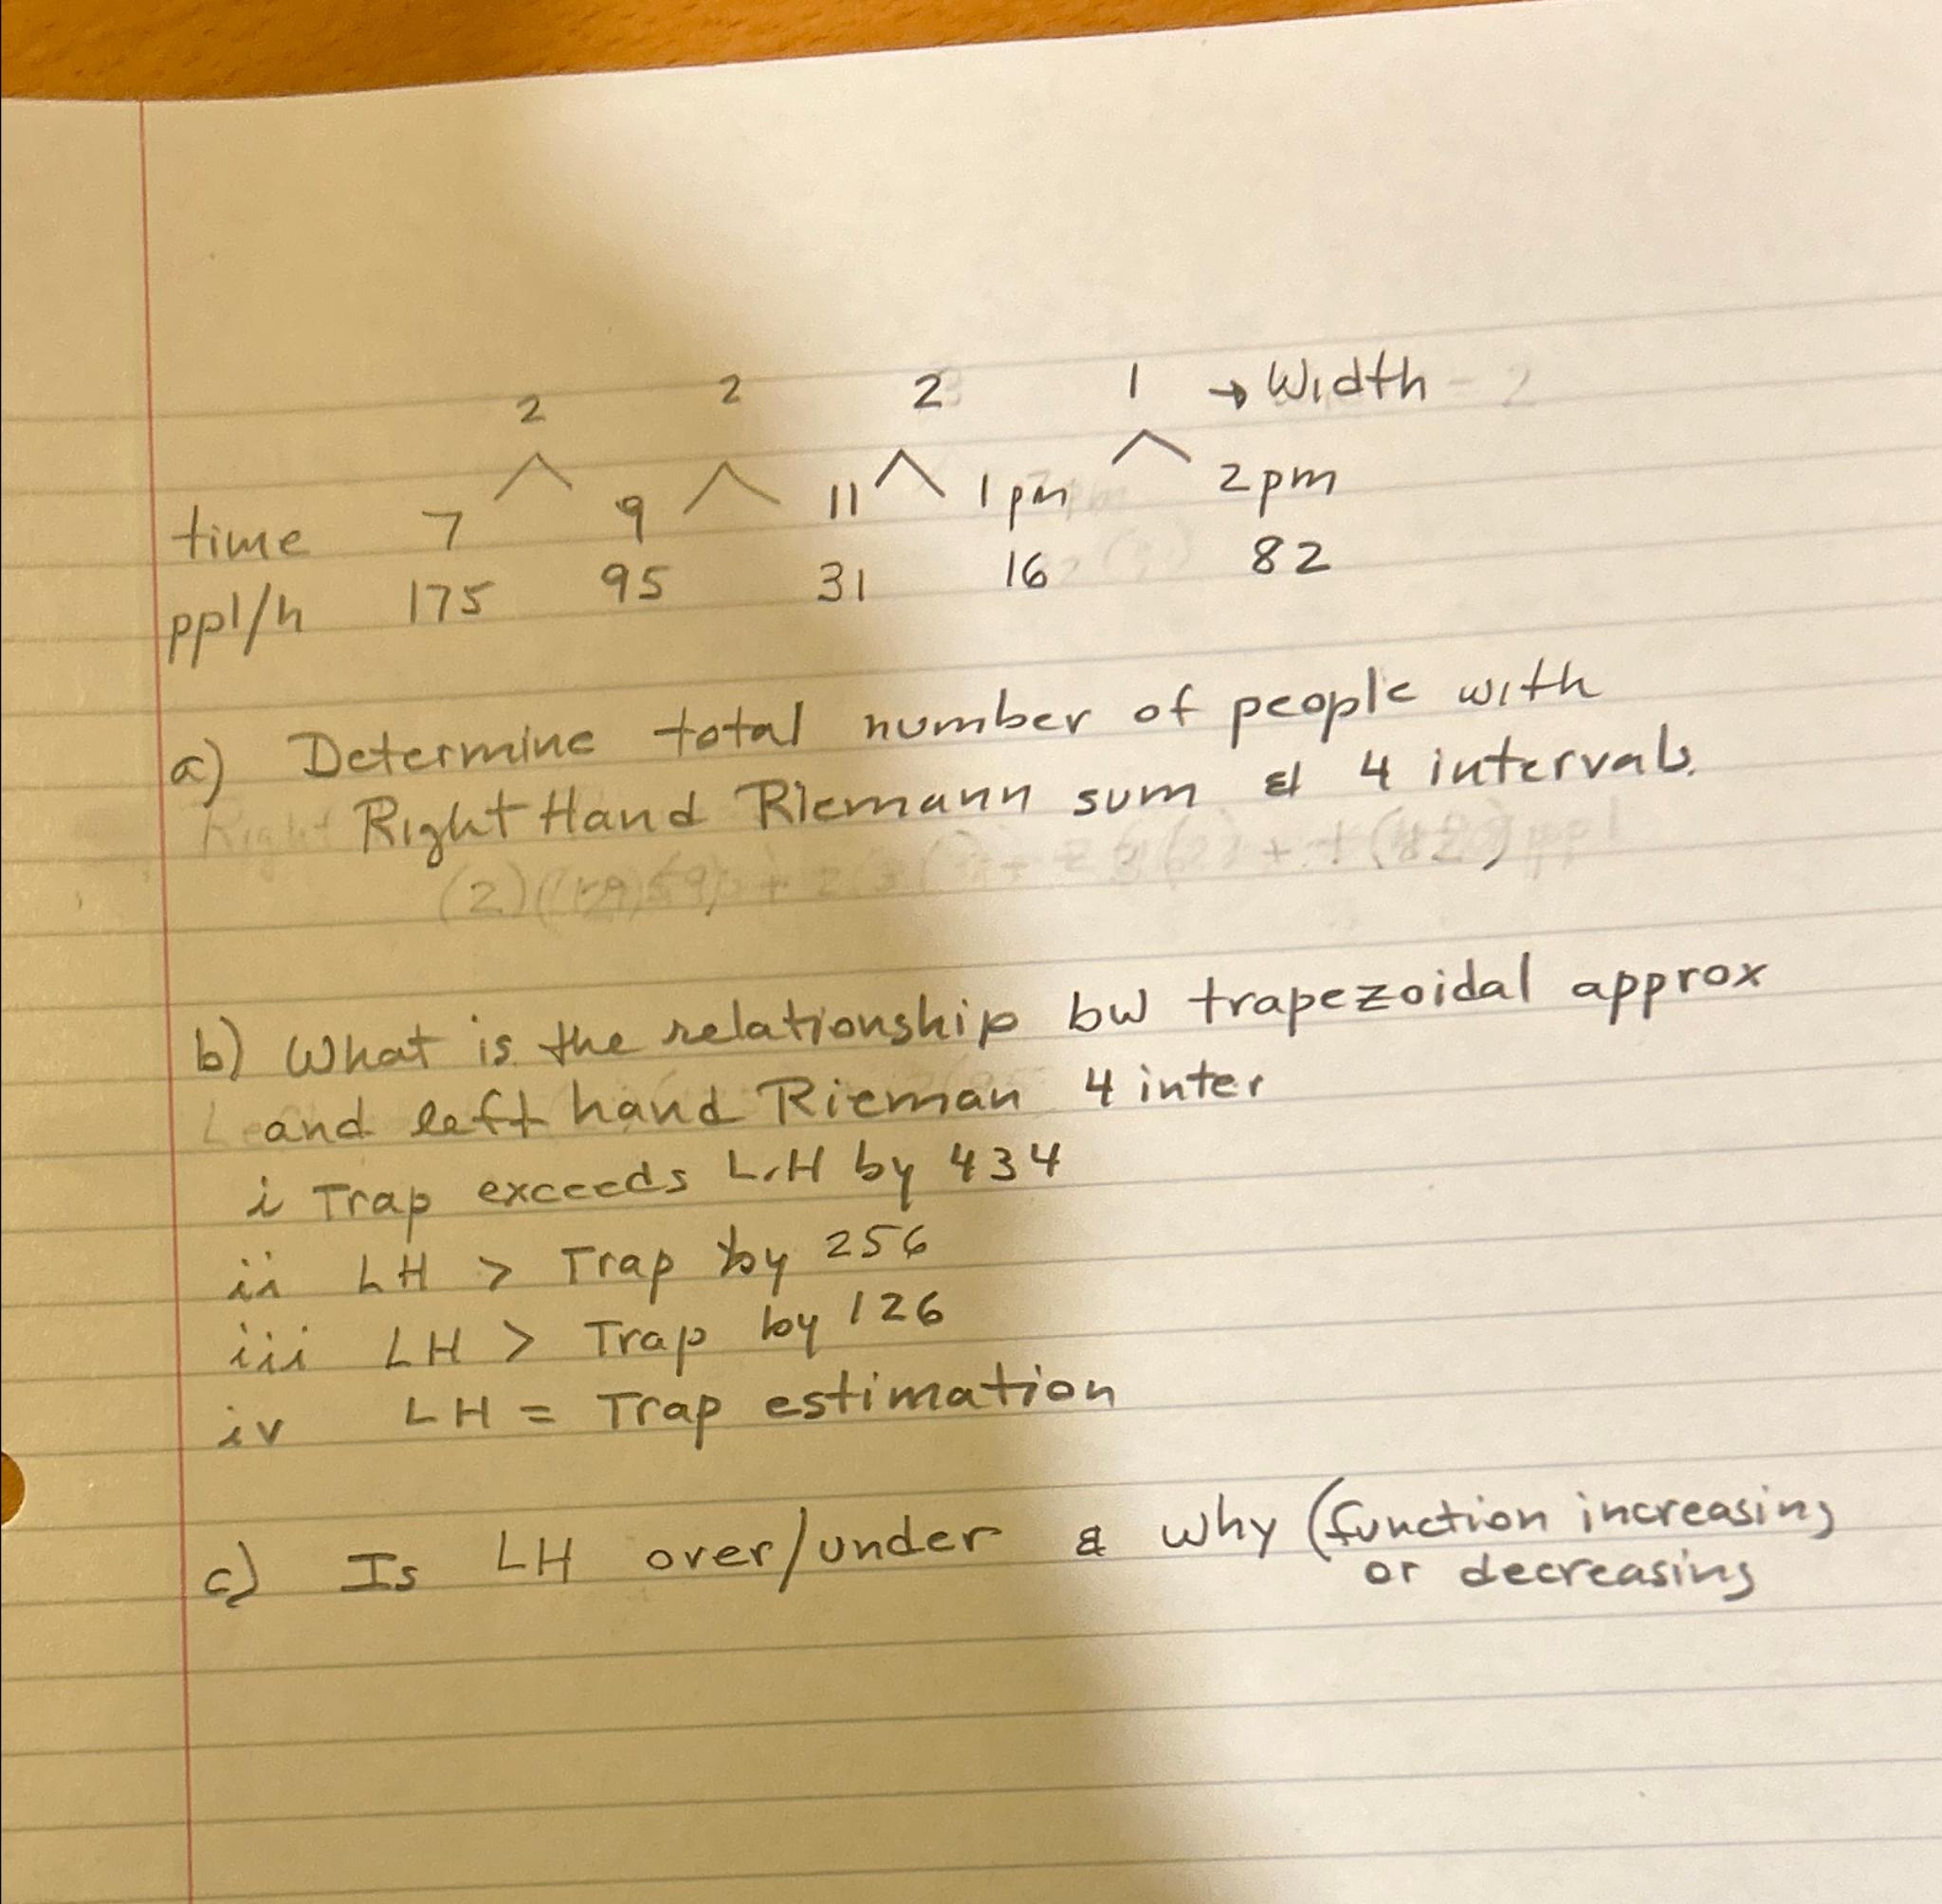 2 2 2 1 → Width
time 7 9 11 1pm 2pm
ppl/h 175 95 31 16 82
a) Determine total number of people with
Right Hand Riemann sum & 4 intervals.
b) What is the relationship bw trapezoidal approx
and left hand Rieman 4 inter
i Trap exceeds L.H by 434
ii LH > Trap by 256
iii LH > Trap by 126
iv LH = Trap estimation
c) Is LH over/under & why (function increasing
or decreasing